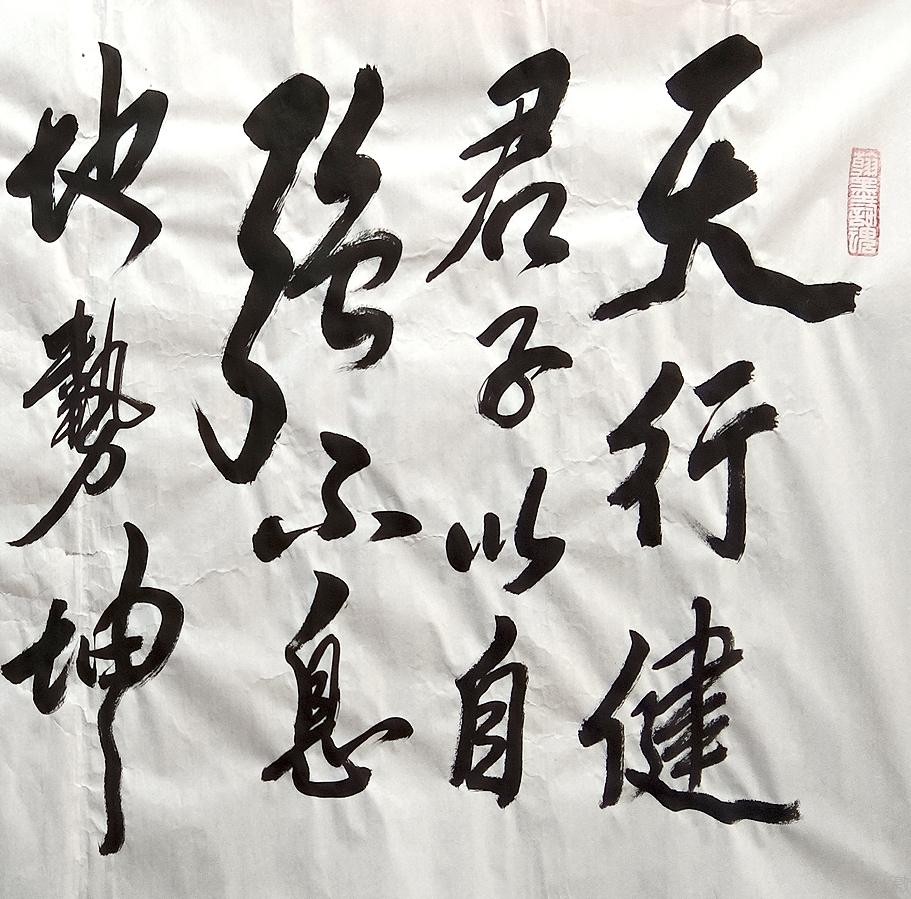 天行健
君子以自
强不息
地勢坤